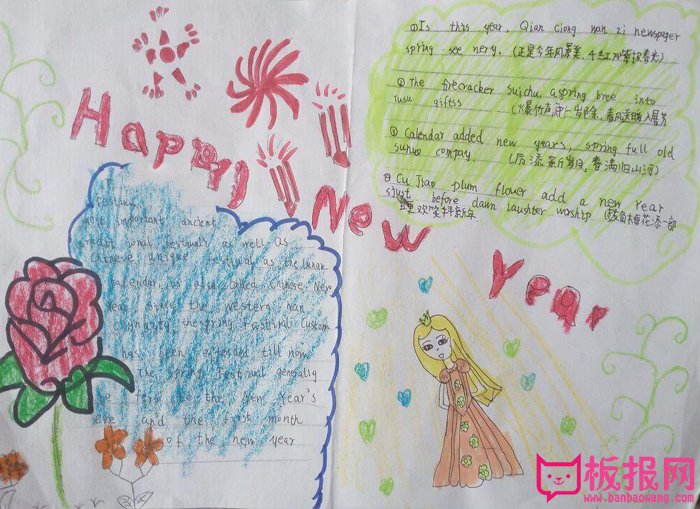 Happy New Year
①Is this year, Qian ciong wan zi newspaper
spring see nery. (正是今年风景美,千红万紫报春光)
②The firecracker Suichu aspring bree into
Tusu giftss (爆竹声中一岁除,春风送暖入屠苏)
③Calendar added new years, spring full old
compay. (历添新岁月,春满旧山河)
④Cu Jiao plum flower add a new Year
before dawn laughter worship
festival
important ancient
festivals as well as
Chinese unique festival as the lunar
Calendar, is also called Chinese New
Year since the western Han
till now
the spring festival generally
to the New Year's
eve and the first month
of the new year
板报网
www.banbaowang.com